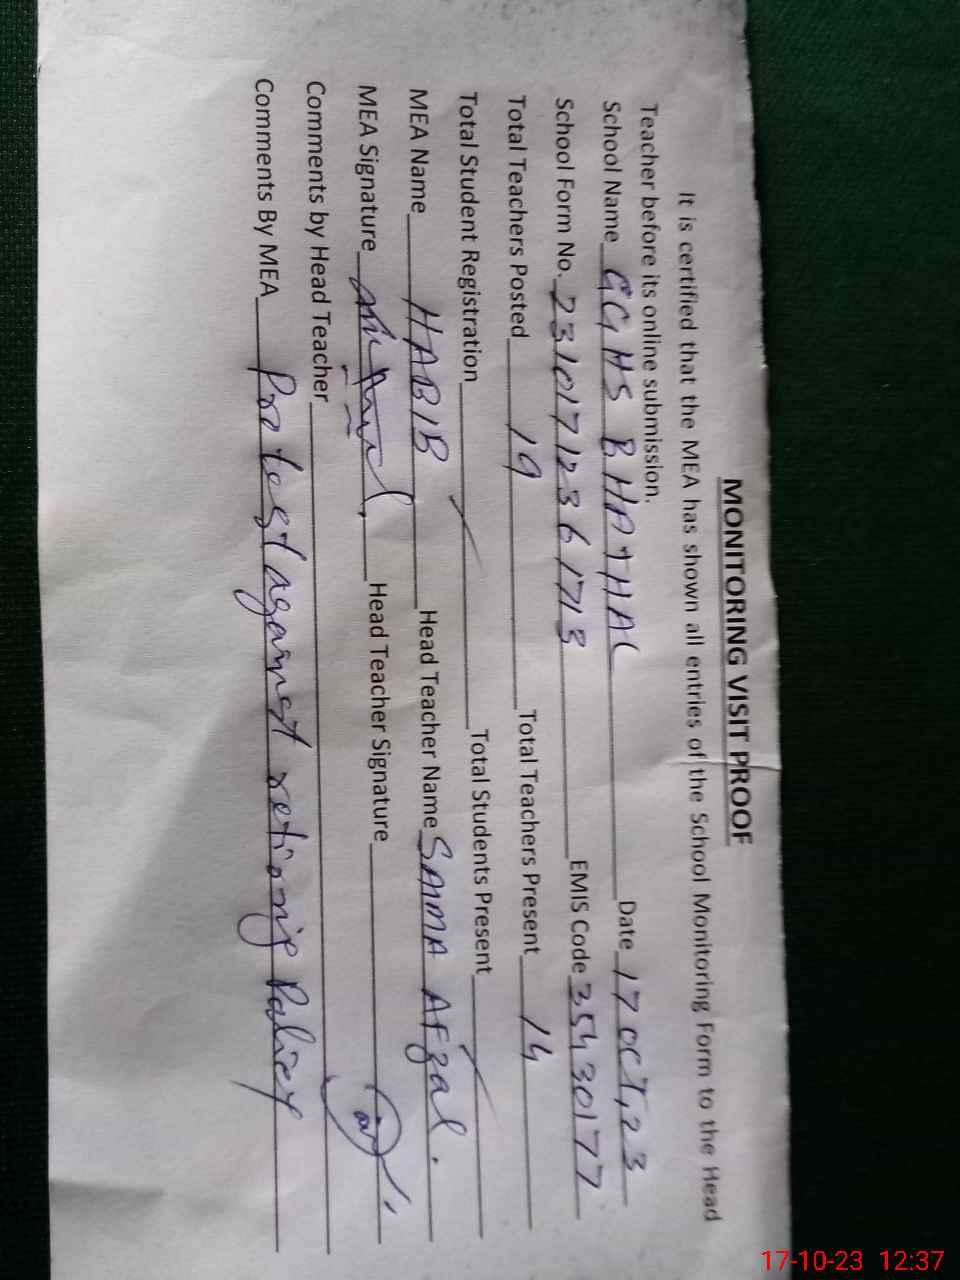 MONITORING VISIT PROOF
It is certified that the MEA has shown all entries of the School Monitoring Form to the Head
Teacher before its online submission.
School Name GGHS BHATHAL Date 17 OCT, 23
School Form No. 23101712361713 EMIS Code 35430177
Total Teachers Posted 19 Total Teachers Present 14
Total Student Registration Total Students Present
MEA Name HABIB Head Teacher Name SAIMA AFzal.
MEA Signature Head Teacher Signature
Comments by Head Teacher
Comments By MEA Protest against retiring Policy
17-10-23 12:37